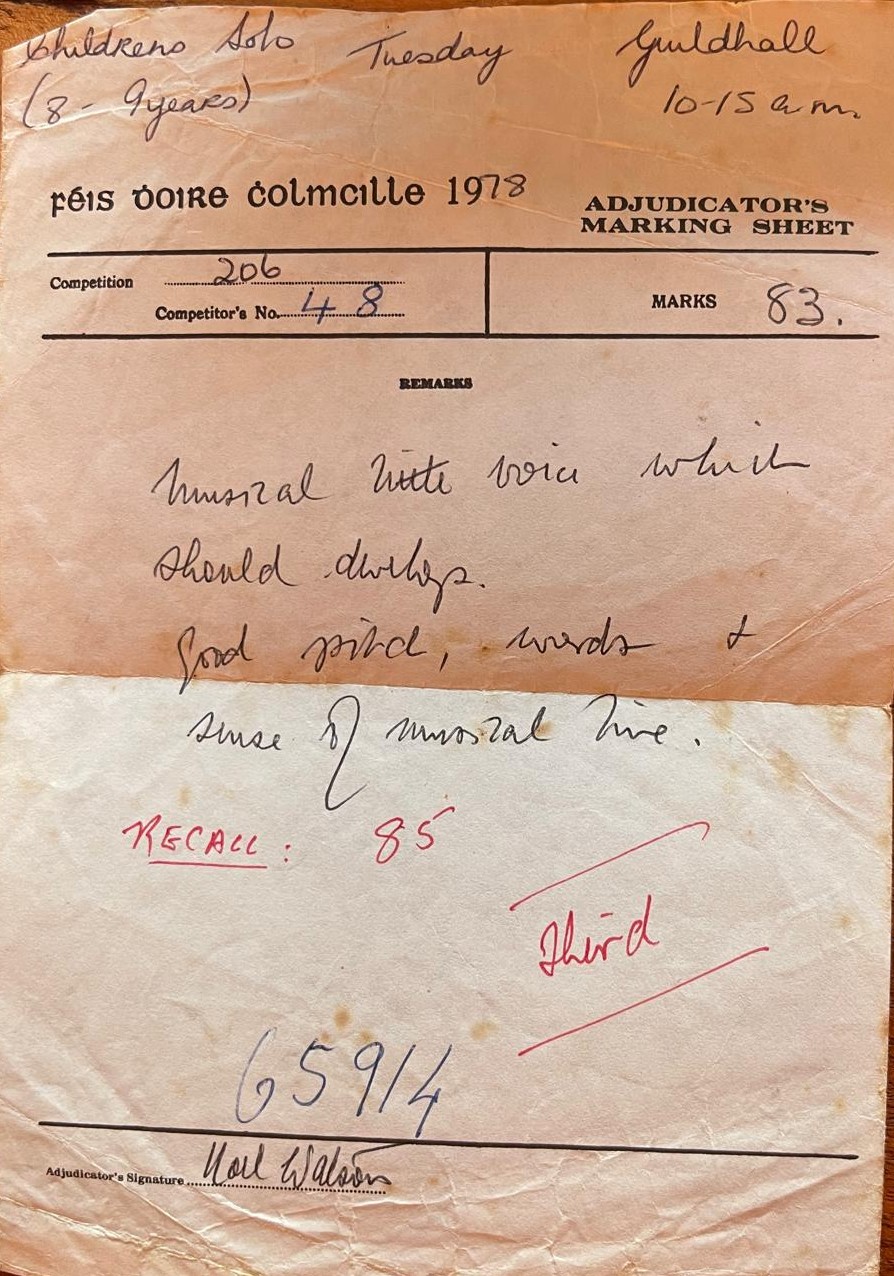 Childrens Solo Tuesday Guildhall
(8 - 9 years) 10-15 a.m.
Féis Ḋoire Ċolmcille 1978
ADJUDICATOR'S
MARKING SHEET
Competition 206
Competitor's No. 48
MARKS 83.
REMARKS
Musical little voice which
should develop.
Good pitch, words &
sense of musical line.
RECALL: 85
Third
65914
Adjudicator's Signature Noel Watson